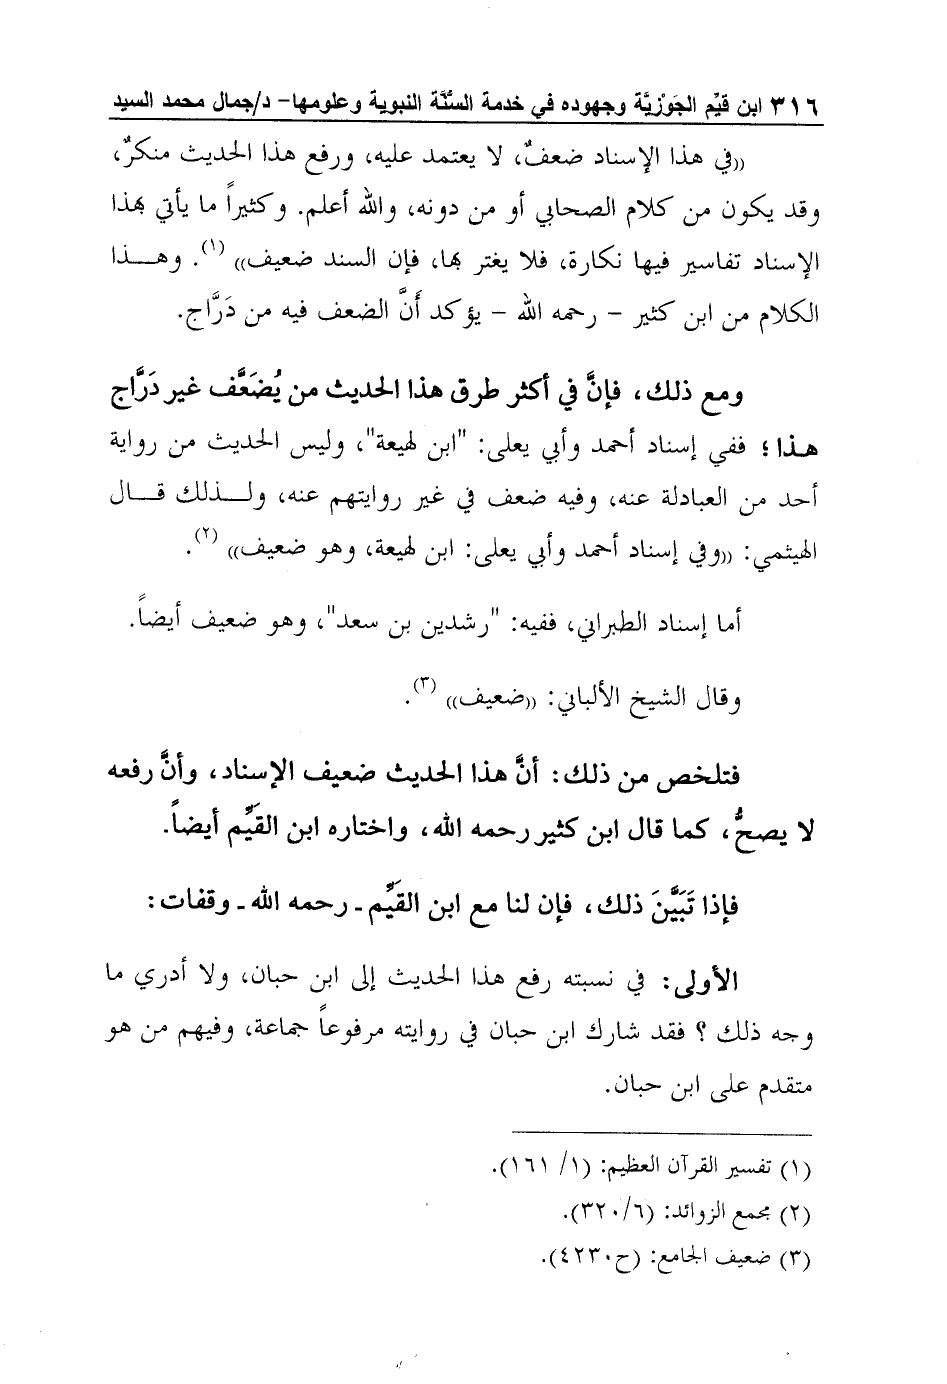 ٣١٦ ابن قيِّم الجَوْزيَّة وجهوده في خدمة السنَّة النبوية وعلومها- د/جمال محمد السيد
((في هذا الإسناد ضعفٌ، لا يعتمد عليه، ورفع هذا الحديث منكرٌ،
وقد يكون من كلام الصحابي أو من دونه، والله أعلم. وكثيراً ما يأتي بهذا
الإسناد تفاسير فيها نكارة، فلا يغتر بها، فإن السند ضعيف)) (١). وهـــذا
الكلام من ابن كثير – رحمه الله – يؤكد أَنَّ الضعف فيه من دَرَّاج.
ومع ذلك، فإنَّ في أكثر طرق هذا الحديث من يُضَعَّف غير دَرَّاج
هذا؛ ففي إسناد أحمد وأبي يعلى: "ابن لهيعة"، وليس الحديث من رواية
أحد من العبادلة عنه، وفيه ضعف في غير روايتهم عنه، ولــذلك قــال
الهيثمي: ((وفي إسناد أحمد وأبي يعلى: ابن لهيعة، وهو ضعيف)) (٢).
أما إسناد الطبراني، ففيه: "رشدين بن سعد"، وهو ضعيف أيضاً.
وقال الشيخ الألباني: ((ضعيف)) (٣).
فتلخص من ذلك: أنَّ هذا الحديث ضعيف الإسناد، وأنَّ رفعه
لا يصحُّ، كما قال ابن كثير رحمه الله، واختاره ابن القَيِّم أيضاً.
فإذا تَبَيَّنَ ذلك، فإن لنا مع ابن القَيِّم ـ رحمه الله ـ وقفات:
الأولى: في نسبته رفع هذا الحديث إلى ابن حبان، ولا أدري ما
وجه ذلك ؟ فقد شارك ابن حبان في روايته مرفوعاً جماعة، وفيهم من هو
متقدم على ابن حبان.
(١) تفسير القرآن العظيم: (١/ ١٦١).
(٢) مجمع الزوائد: (٣٢٠/٦).
(٣) ضعيف الجامع: (ح٤٢٣٠).